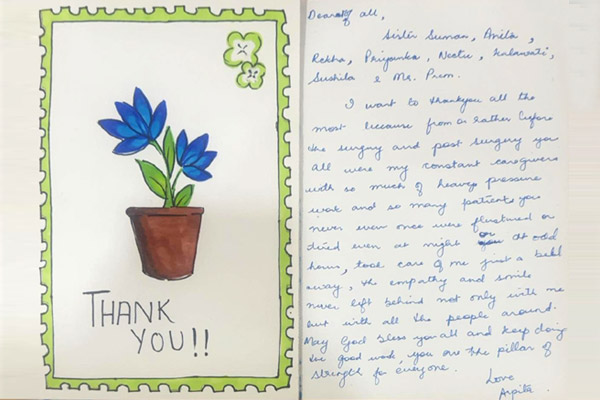 THANK
YOU!!
Dear of all,
Sister Suman, Anita,
Rekha, Priyanka, Neetu, Kalawati,
Sushila & Mr. Prem.
I want to thankyou all the
most because from or rather before
the surgery and post surgery you
all were my constant caregivers
with so much of heavy pressure
work and so many patients you
never even once were flustured or
tired even at night or at odd
hours, took care of me just a bell
away, the empathy and smile
never left behind not only with me
but with all the people around.
May God bless you all and keep doing
the good work, you are the pillar of
strength for everyone.
Love
Arpita.